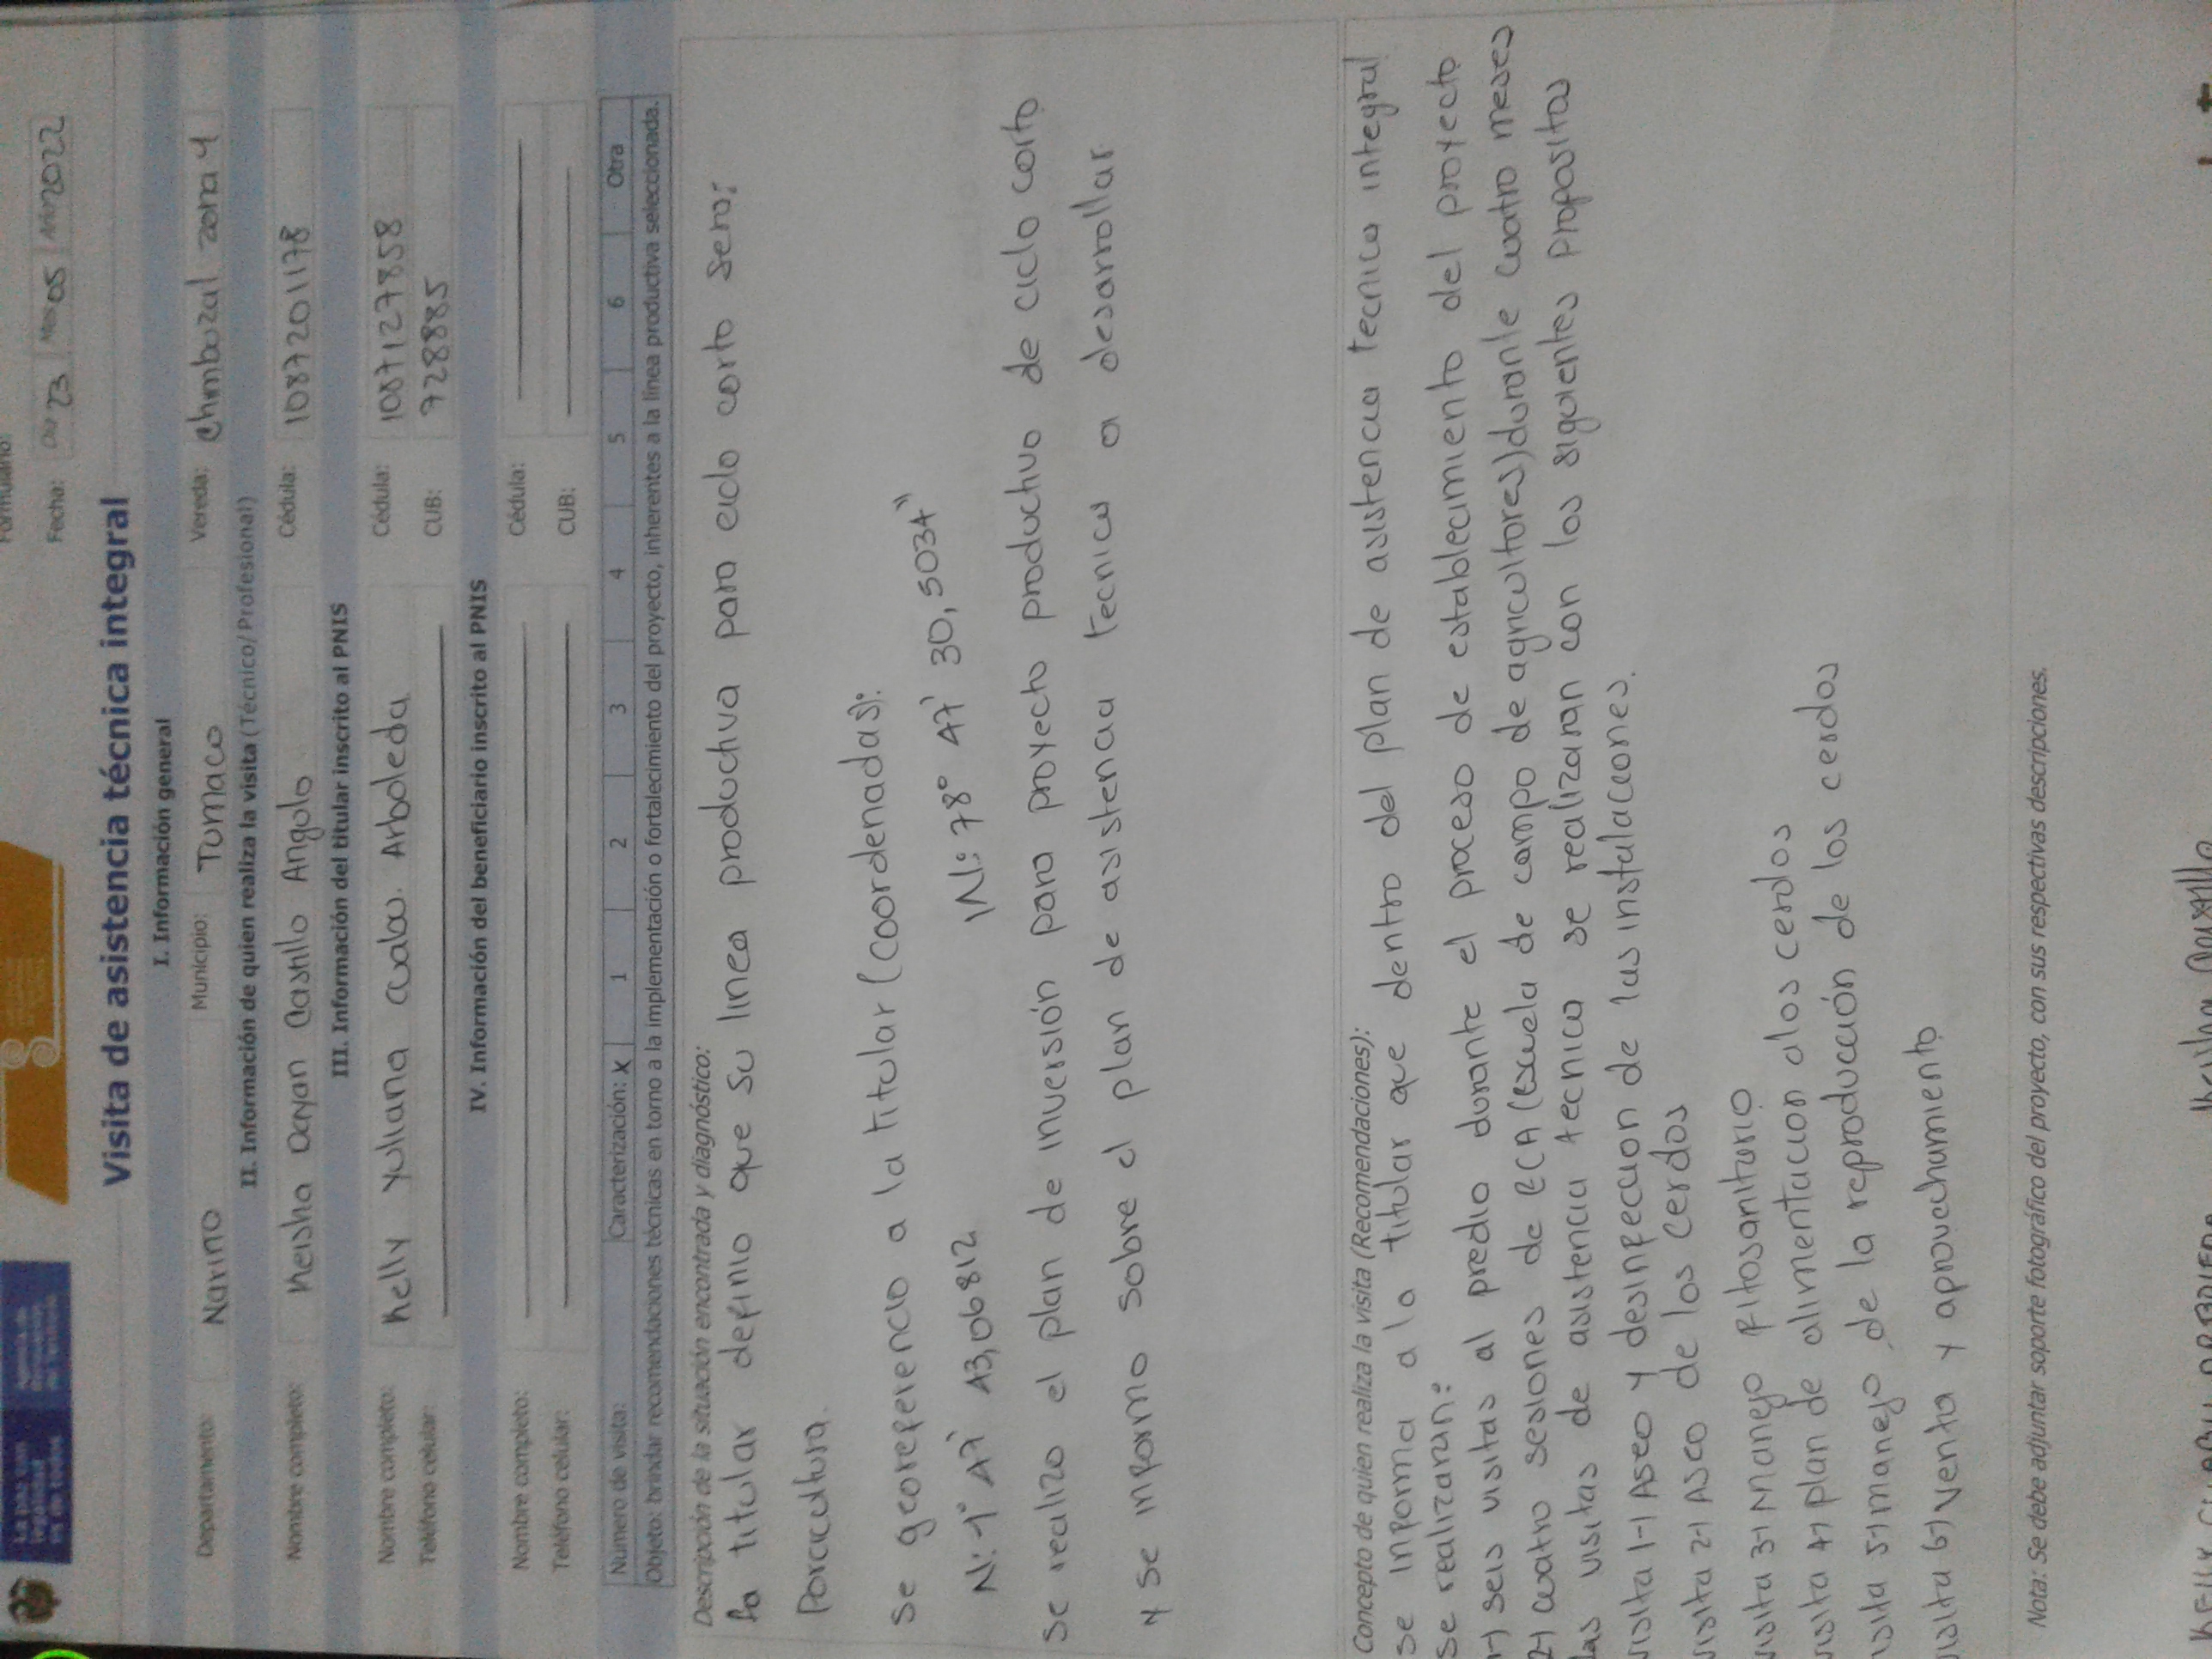 Formulario:
Fecha: Día 23 Mes 05 Año 2022
Visita de asistencia técnica integral
I. Información general
Departamento: Nariño Municipio: Tumaco Vereda: Chimbuzal zona 4
II. Información de quien realiza la visita (Técnico/ Profesional)
Nombre completo: Keisha Dayan Castillo Angulo Cédula: 1087201178
III. Información del titular inscrito al PNIS
Nombre completo: Kelly Yuliana Arboleda Cédula: 1087127858
Teléfono celular: CUB: 728885
IV. Información del beneficiario inscrito al PNIS
Nombre completo: Cédula:
Teléfono celular: CUB:
Numero de visita: Caracterización: X 1 2 3 4 5 6 Otra
Objeto: brindar recomendaciones técnicas en torno a la implementación o fortalecimiento del proyecto, inherentes a la línea productiva seleccionada.
Descripción de la situación encontrada y diagnóstico:
la titular definio que su linea productiva para ciclo corto sera:
Porcicultura.
Se georeferencio a la titular (coordenadas):
N: 1° 47' 43,06812 W: 78° 47' 30,5034"
Se realizo el plan de inversión para proyecto productivo de ciclo corto
y se informo sobre el plan de asistencia tecnica a desarrollar
Concepto de quien realiza la visita (Recomendaciones):
se informa a la titular que dentro del plan de asistencia tecnica integral
se realizaran:
1-) seis visitas al predio durante el proceso de establecimiento del proyecto
2-) cuatro sesiones de ECA (escuela de campo de agricultores) durante cuatro meses
las visitas de asistencia tecnica se realizaran con los siguientes propositos
visita 1-) Aseo y desinfeccion de las instalaciones.
visita 2-) Aseo de los cerdos
visita 3-) Manejo fitosanitario
visita 4-) plan de alimentacion a los cerdos
visita 5-) manejo de la reproducción de los cerdos
visita 6-) venta y aprovechamiento
Nota: Se debe adjuntar soporte fotográfico del proyecto, con sus respectivas descripciones.